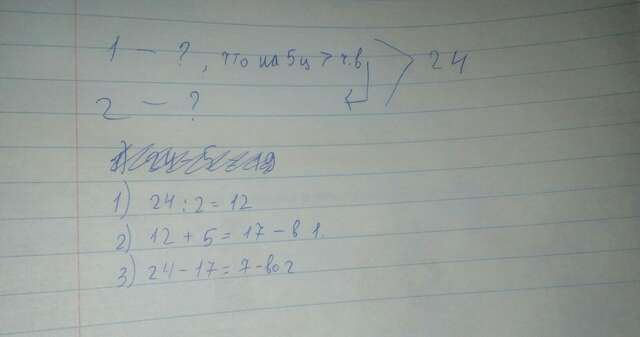 1 – ? , что на 5ц > ч.в 24
2 – ?
1) 24 : 2 = 12
2) 12 + 5 = 17 – в 1.
3) 24 – 17 = 7 – во 2